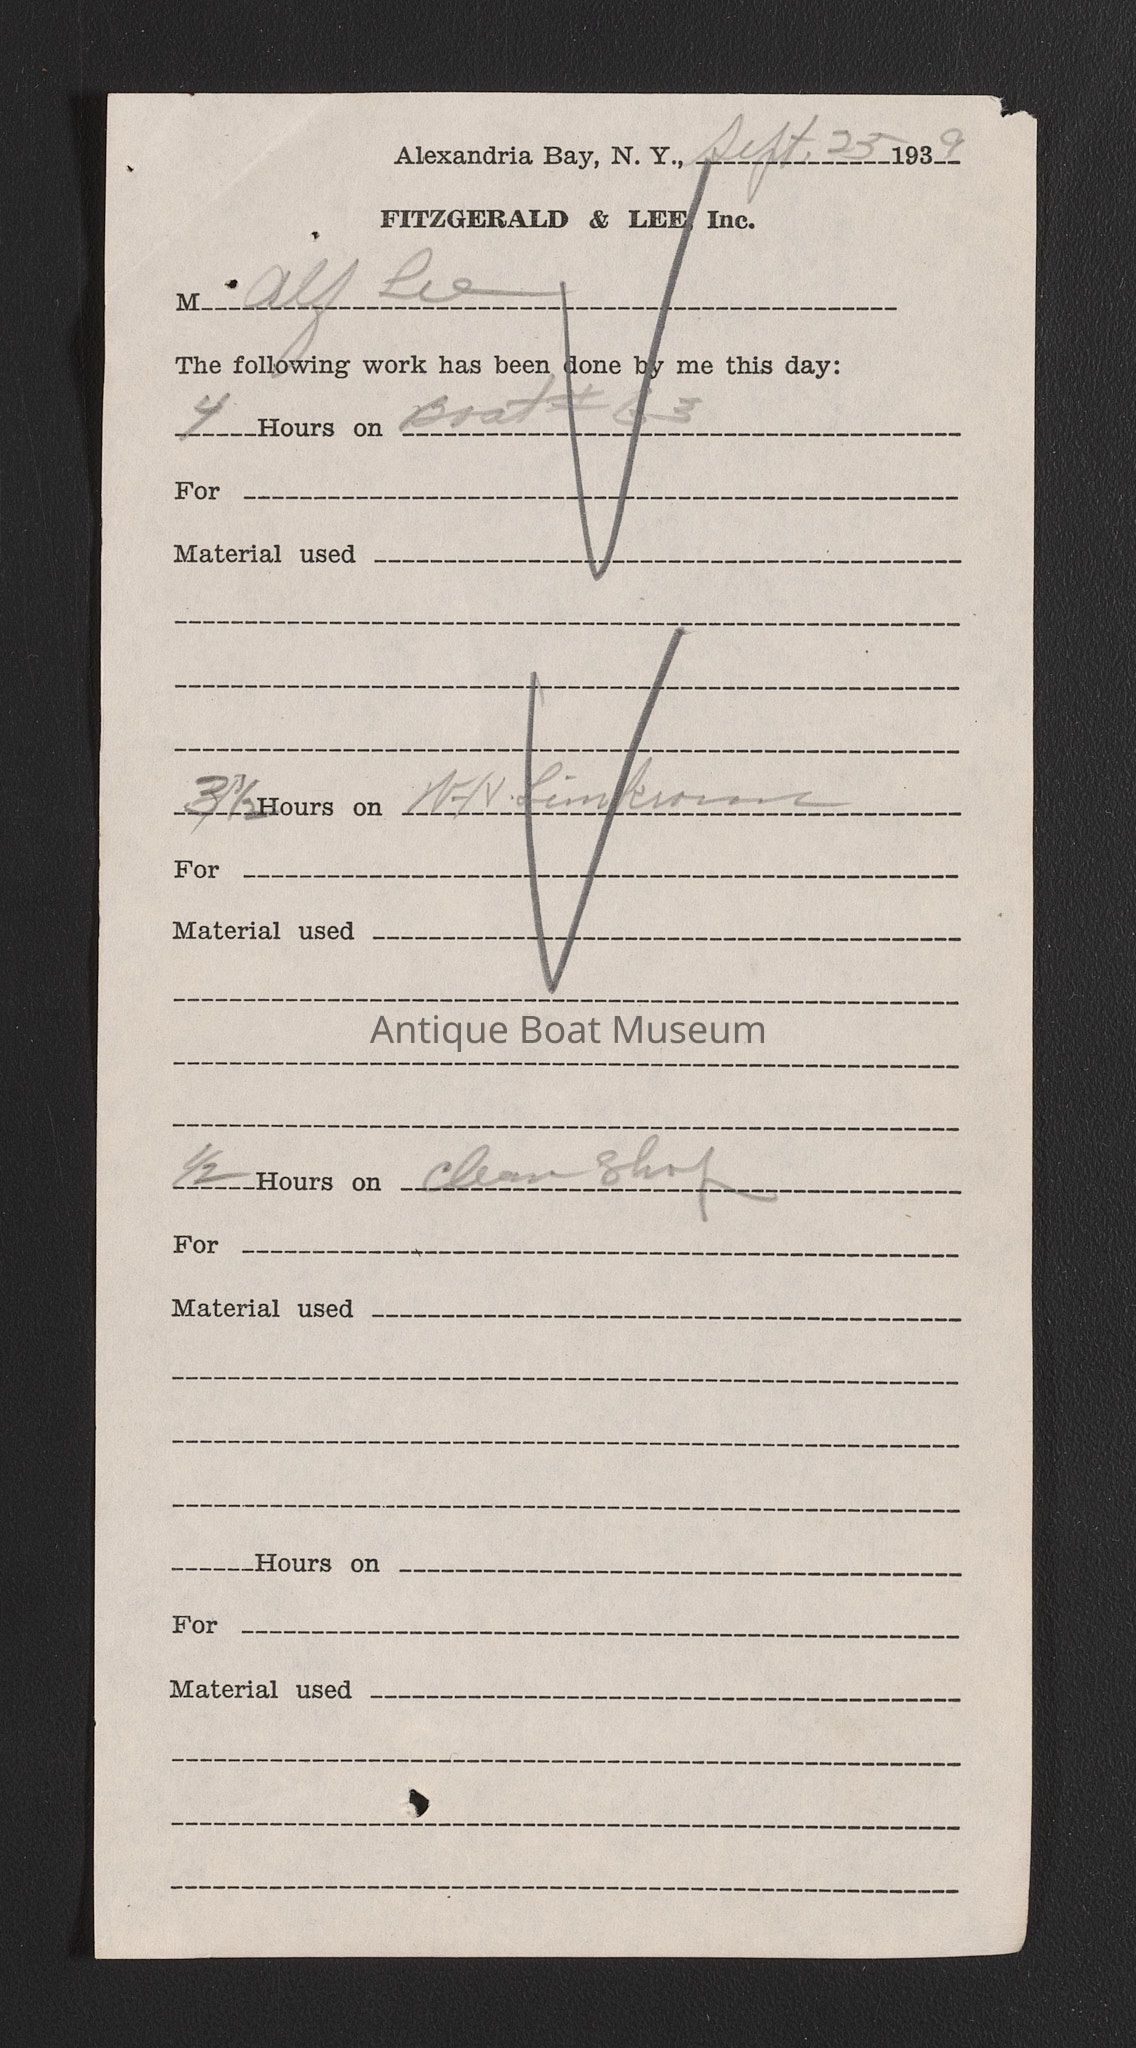 Alexandria Bay, N. Y., Sept. 25 1939
FITZGERALD & LEE, Inc.
M Alf Lee
The following work has been done by me this day:
4 Hours on Boat # 63
For
Material used
3 1/2 Hours on W.H.
For
Material used
Antique Boat Museum
1/2 Hours on Clean Shop
For
Material used
Hours on
For
Material used